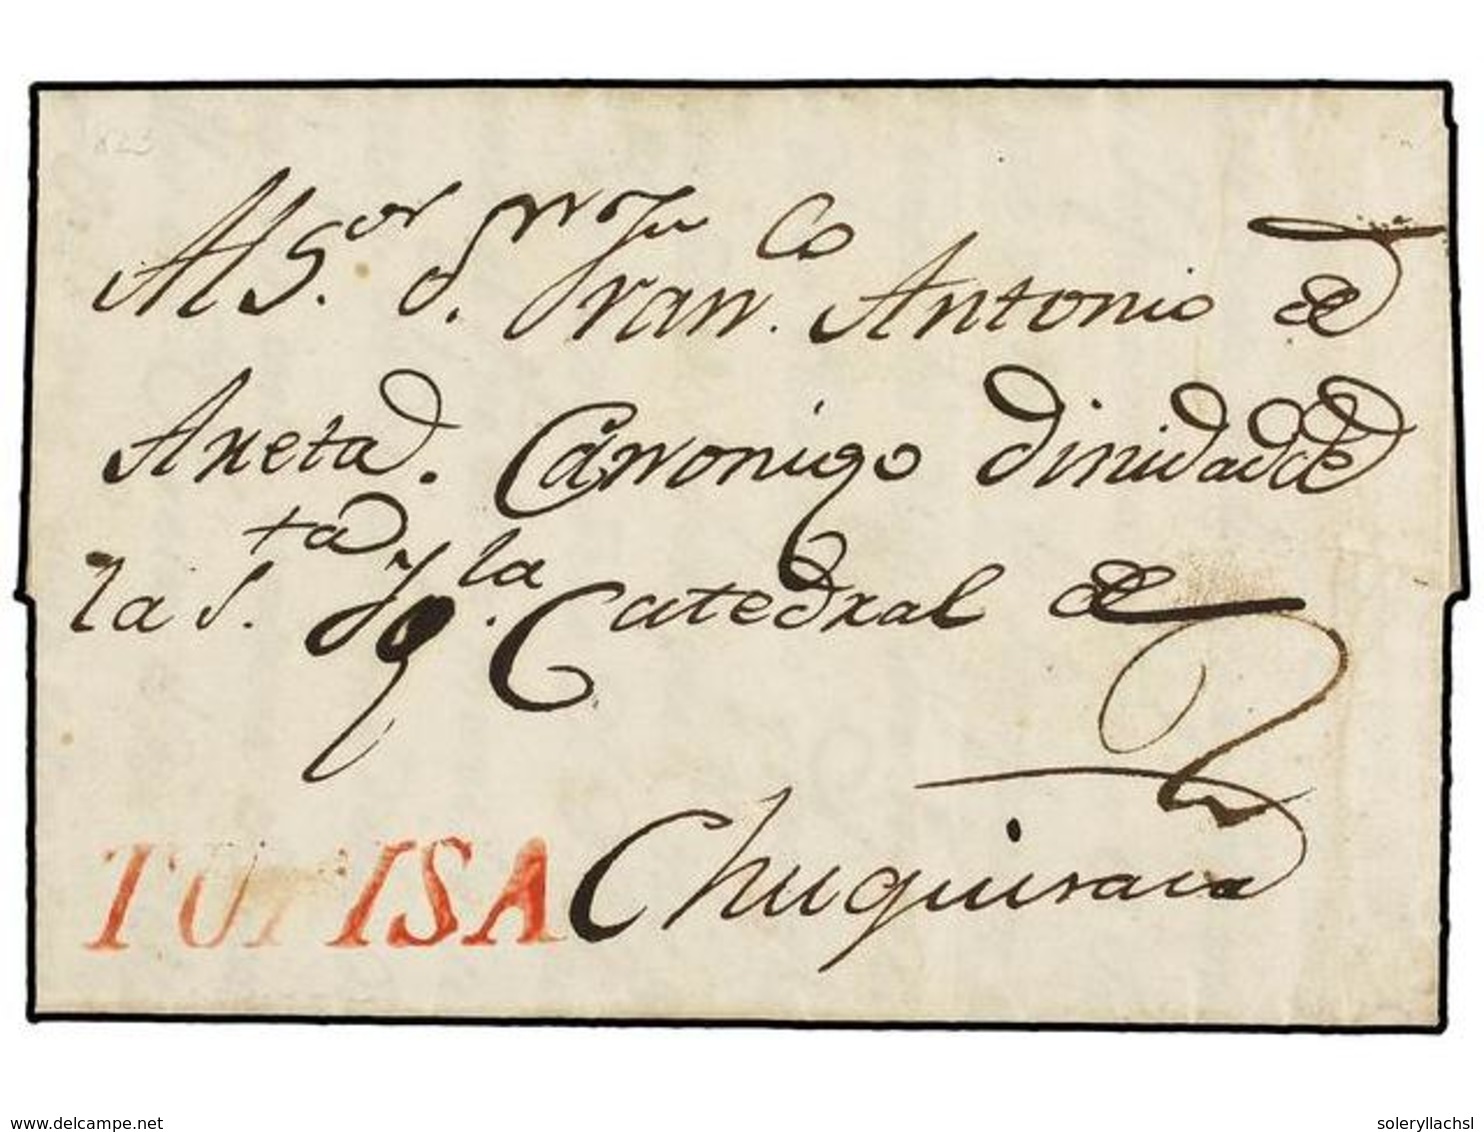 Al S.or d.n Fran.co Antonio de
Areta. Canonigo dinidad de
la S.ta Yg.la Catedral de
Chuquisaca
TUPISA
delcampe.net
soleryllachsl